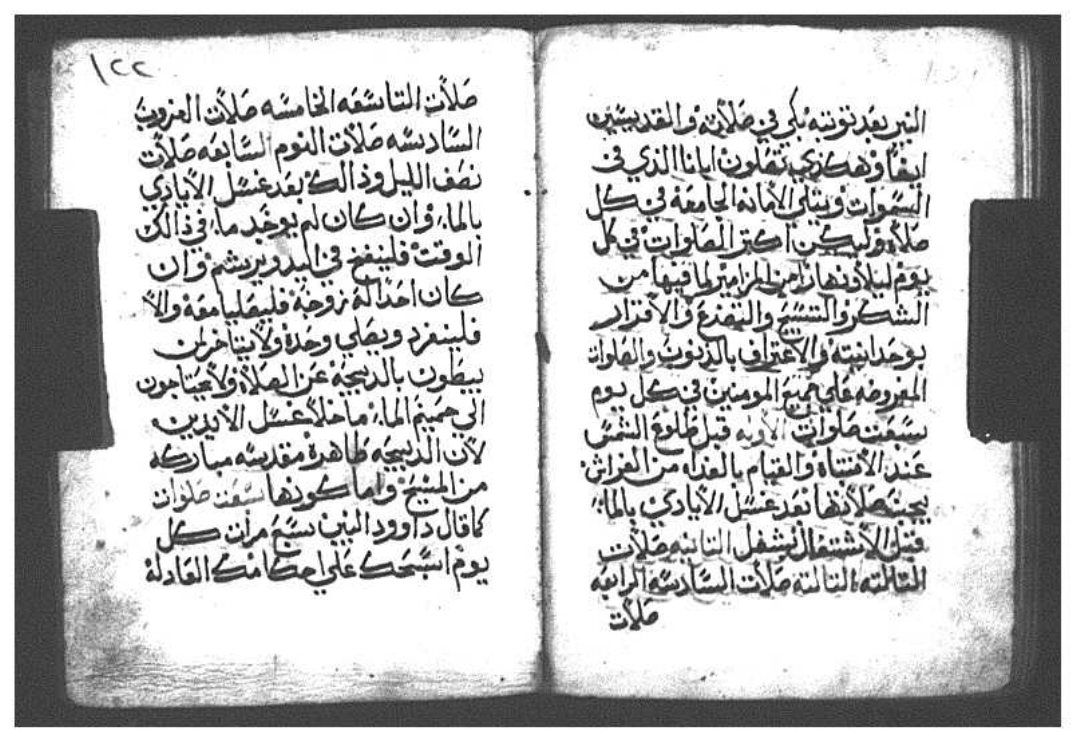 النبي بعد توبته بكي في صلاته والقديسين
ايضا وهكذي تقولون ابانا الذي في
السموات ويتلي الامانه الجامعة في كل
صلاة وليكن اكتر الصلوات في كل
يوم ليلا ونهارا من المزامير لما فيها من
الشكر والتسبيح والتضرع والاقرار
بوحدانيته والاعتراف بالذنوب والصلوات
المفروضه علي جميع المومنين في كل يوم
سبعت صلوات الاوله قبل طلوع الشمس
عند الانتباه والقيام بالغداه من الفراش
يجب صلاتها بعد غسل الايادي بالماء
قبل الاشتغال بشغل التانيه صلات
التالته التالته صلات السادسه الرابعه
صلات
١٢٢
صلات التاسعه الخامسه صلات الغروب
السادسه صلات النوم السابعه صلات
نصف الليل وذالك بعد غسل الايادي
بالماء وان كان لم يوجد ماء في ذالك
الوقت فلينفخ في اليد ويرشم وان
كان احد اله زوجة فليصليا معه والا
فلينفرد ويصلي وحدة ولا يتاخر لمن
يبطون بالديجة عن الصلاة ولا يحتاجون
الي حميم الماء ما خلا غسل الايدين
لان الديجه طاهرة مقدسه مباركه
من المسيح واما كونها سبعت صلوات
كما قال داوود النبي سبع مرات كل
يوم اسبحك علي احكامك العادلة